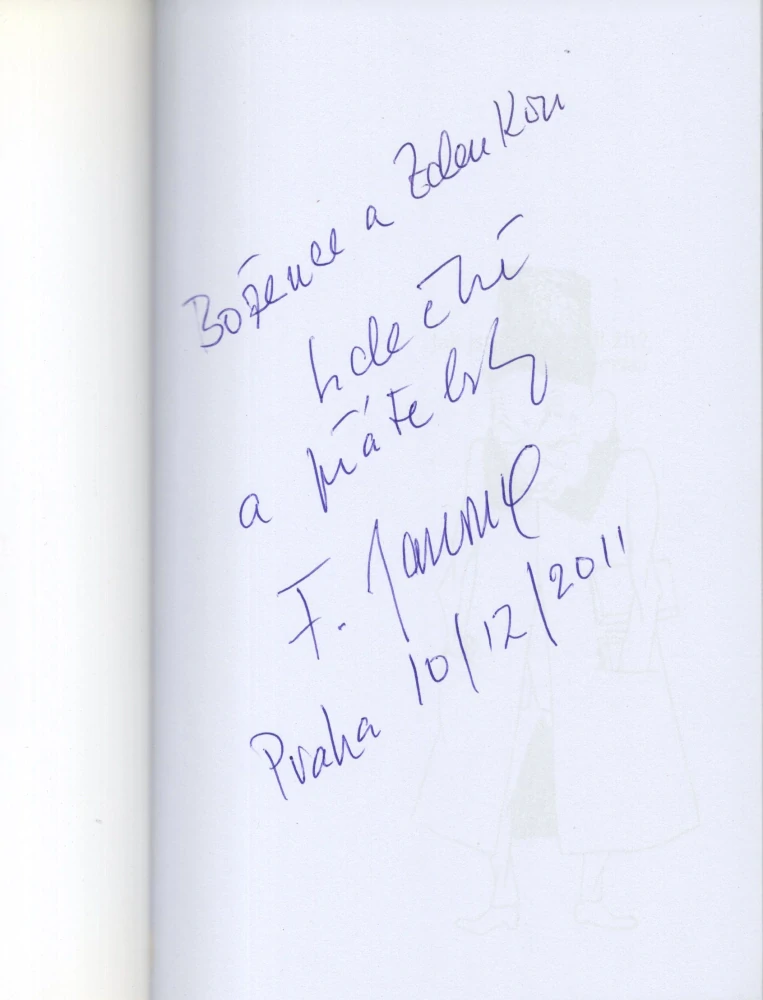 Božence a Zdenkovi
srdečně
a přátelsky
F.
Praha 10/12/2011